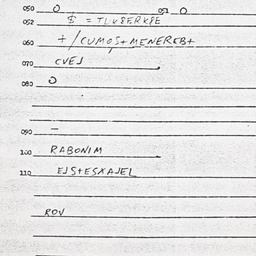 050 0 051 0
052 $ = TLV8ERKPE
060 +/CUMOS+MENERCB+
070 CVEJ
080 0
090 –
100 RABONIM
110 EJS+ESXAJEL
ROV